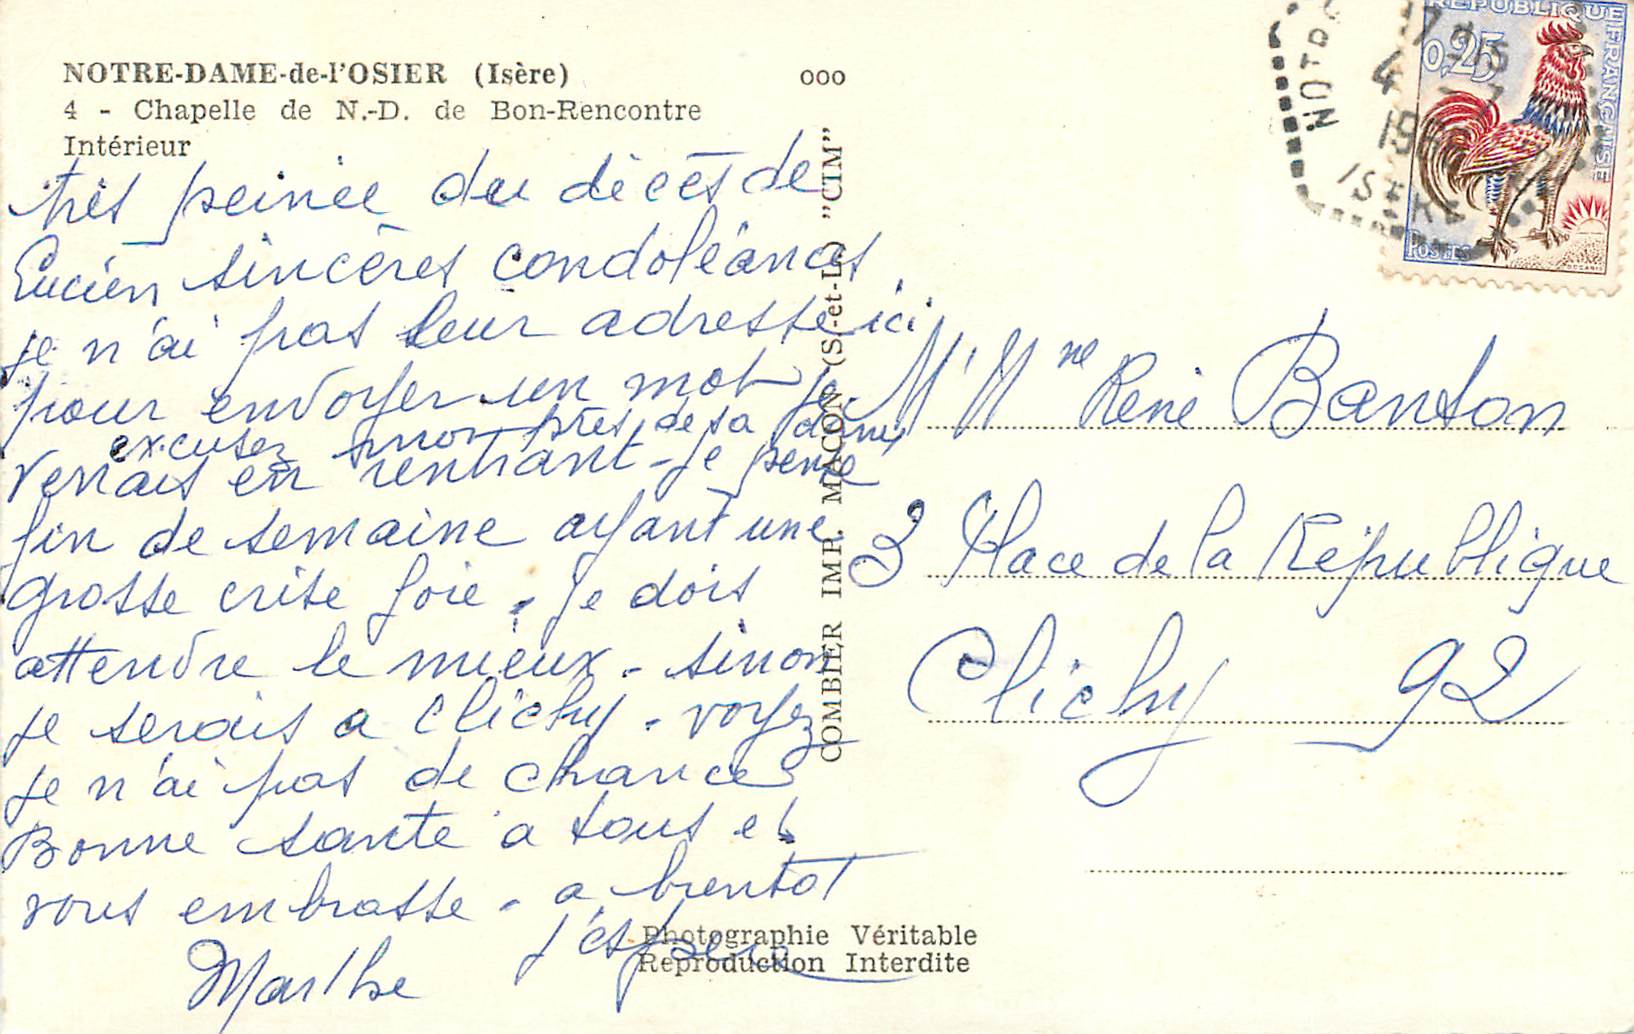 NOTRE-DAME-de-l'OSIER (Isère) 000
4 - Chapelle de N.-D. de Bon-Rencontre
Intérieur
très peinée du décès de
Lucien sincères condoléances
je n'ai pas leur adresse ici
pour envoyer un mot je
excusez moi près de sa dame
verrais en rentrant - je pense
fin de semaine ayant une
grosse crise foie. Je dois
attendre le mieux - sinon
je serais a Clichy. voyez
je n'ai pas de chance
Bonne sante a tous et
vous embrasse - a bientot
j'espere
Marthe
COMBIER IMP. MACON (S.-et-L.) "CIM"
Photographie Véritable
Reproduction Interdite
REPUBLIQUE FRANÇAISE
0,25
POSTES
NOTR
17 H15
4
19
ISERE
M. Mme René Banton
3 Place de la République
Clichy 92